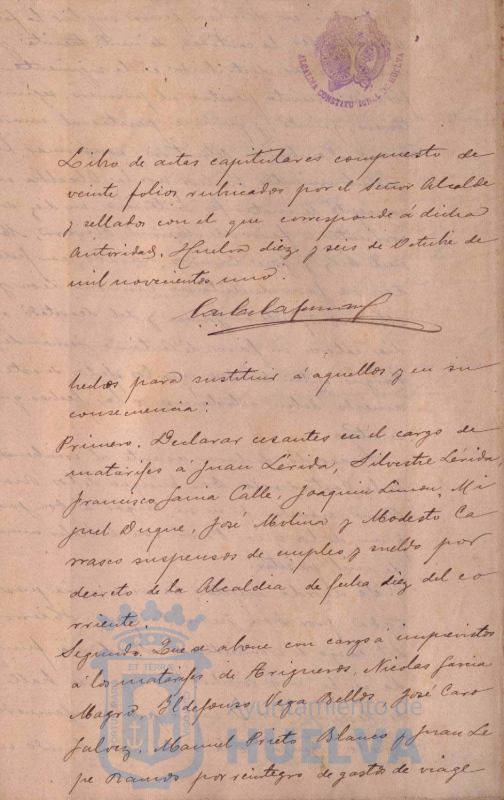 ALCALDIA CONSTITUCIONAL DE HUELVA
Libro de actas capitulares compuesto de
veinte folios rubricados por el Señor Alcalde
y sellados con el que corresponde á dicha
Autoridad. Huelva diez y seis de Octubre de
mil novecientos uno.
hechos para sustituir á aquellos y en su
consecuencia:
Primero. Declarar cesantes en el cargo de
matarifes á Juan Lérida, Silvestre Lérida,
Francisco Calle, Joaquin Limon, Mi
guel Duque, José Molina y Modesto Ca
rrasco suspensos de empleo y sueldo por
decreto de la Alcaldia de fecha diez del co-
rriente.
Segundo. Que se abone con cargo a imprevistos
á los matarifes de Trigueros, Nicolas Garcia
Magro, Ildefonso Vega Bellos, José Caro
Galvez, Manuel Prieto Blanco y Juan Le
pe Ramos por reintegro de gastos de viage
Ayuntamiento de
HUELVA